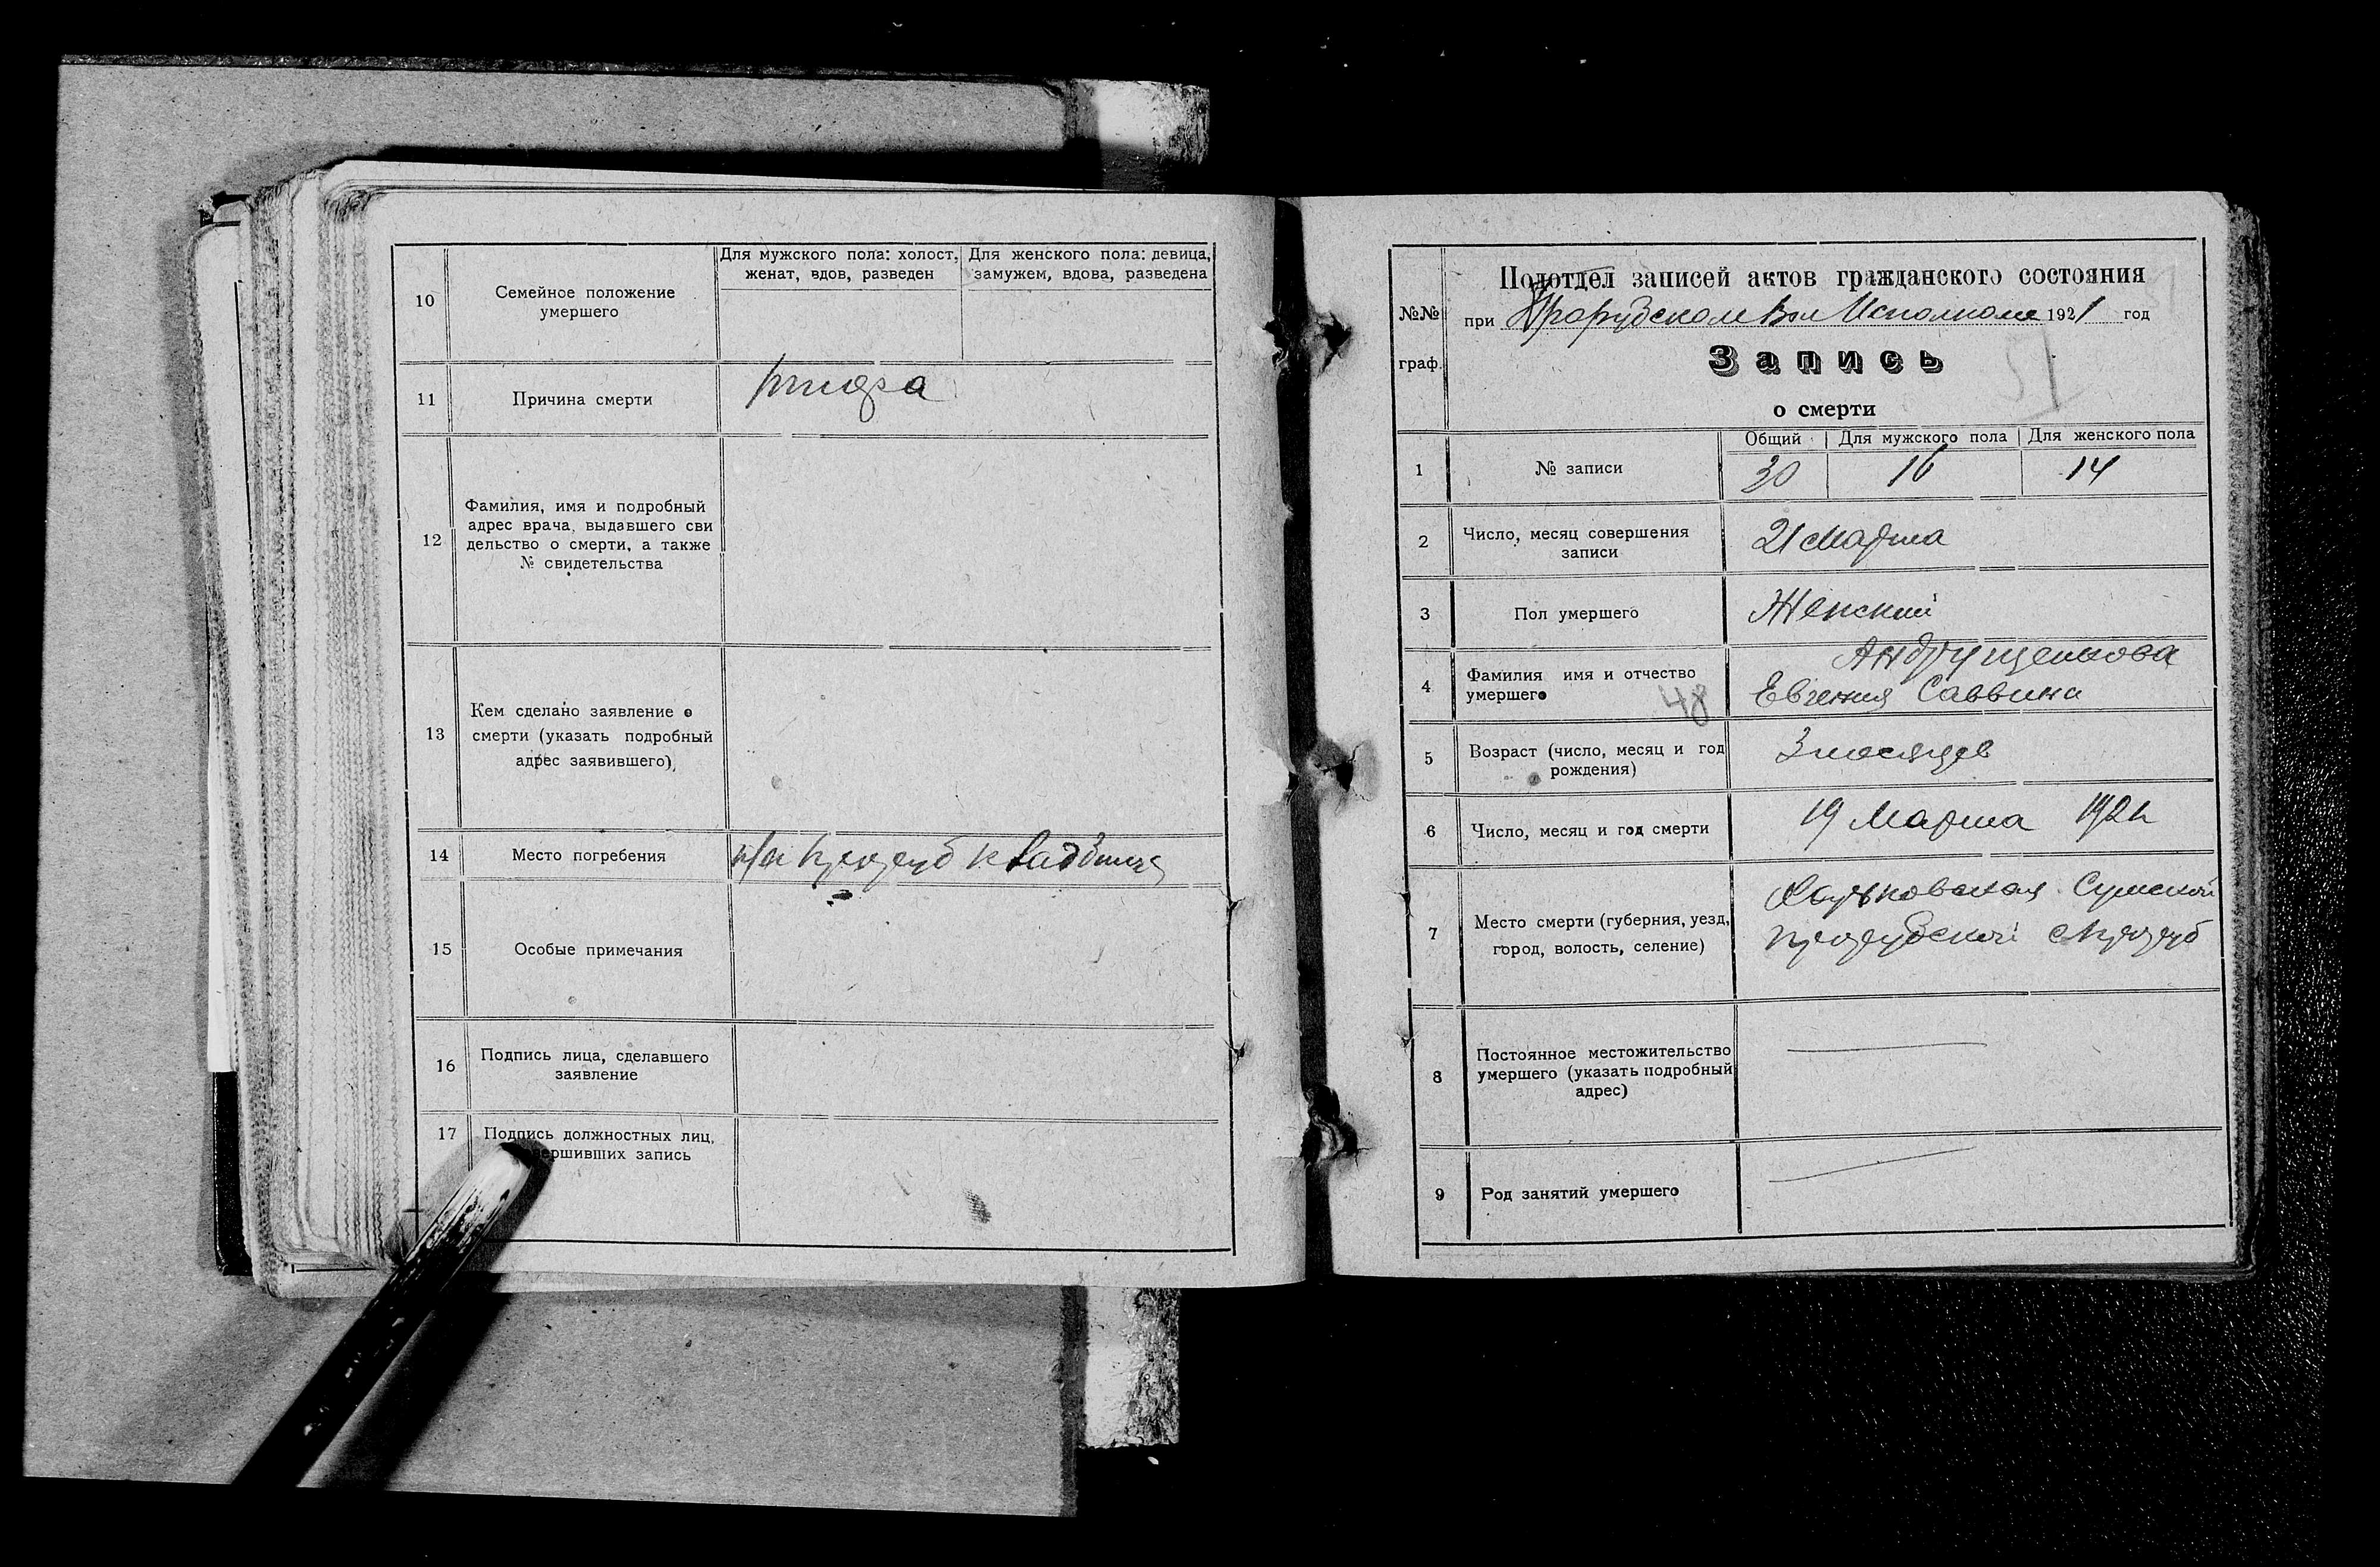 10
Семейное положение
умершего
Для мужского пола: холост,
женат, вдов, разведен
Для женского пола: девица,
замужем, вдова, разведена
11
Причина смерти
12
Фамилия, имя и подробный
адрес врача, выдавшего сви
дельство о смерти, а также
№ свидетельства
13
Кем сделано заявление о
смерти (указать подробный
адрес заявившего)
14
Место погребения
15
Особые примечания
16
Подпись лица, сделавшего
заявление
17
Подпись должностных лиц,
вершивших запись
№№
граф.
Подотдел записей актов гражданского состояния
при Прорубском Вол Исполкоме 1921 год
Запись
о смерти
51
1
№ записи
Общий
Для мужского пола
Для женского пола
30
16
14
2
Число, месяц совершения
записи
21 марта
3
Пол умершего
Женский
4
Фамилия имя и отчество
умершего
48
Андрущенкова
Евгения Саввина
5
Возраст (число, месяц и год
рождения)
3 месяцев
6
Число, месяц и год смерти
19 Марта 1921
7
Место смерти (губерния, уезд,
город, волость, селение)
Харьковская Сумской
прорубской с Проруб
8
Постоянное местожительство
умершего (указать подробный
адрес)
9
Род занятий умершего